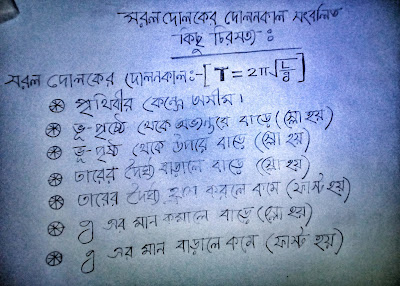 সরল দোলকের দোলনকাল সংবলিত
কিছু চিরসত্য :
সরল দোলকের দোলনকাল:-[T=2π√L/g]
পৃথিবীর কেন্দ্রে অসীম।
ভূ-পৃষ্ঠ থেকে অভ্যন্তরে বাড়ে (স্লো হয়)
ভূ-পৃষ্ঠ থেকে উপরে বাড়ে (স্লো হয়)
তারের দৈর্ঘ্য বাড়ালে বাড়ে (স্লো হয়)
তারের দৈর্ঘ্য হ্রাস করলে কমে (ফাস্ট হয়)
g এর মান কমালে বাড়ে (স্লো হয়)
g এর মান বাড়ালে কমে (ফাস্ট হয়)